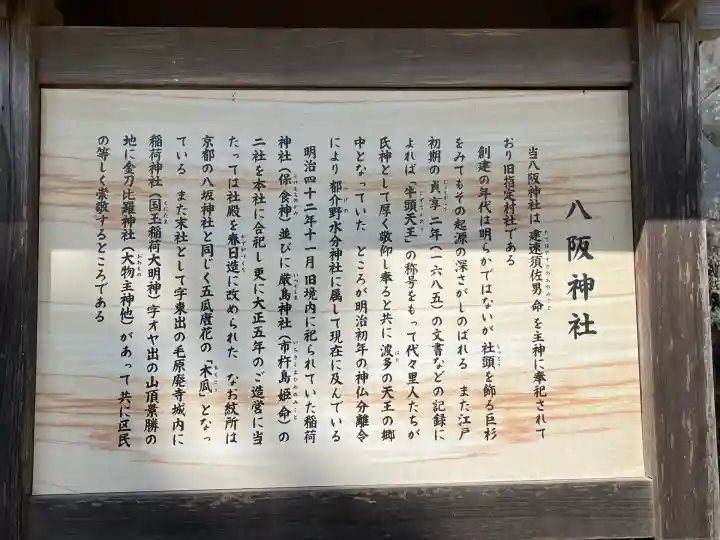 八阪神社
当八阪神社は 建速須佐男命 を主神に奉祀されて
おり旧指定村社である
創建の年代は明らかではないが 社頭を飾る巨杉
をみてもその起源の深さがしのばれる また江戸
初期の貞享二年(一六八五)の文書などの記録に
よれば「牛頭天王」の称号をもって代々里人たちが
氏神として厚く敬仰し奉ると共に 波多の天王の郷
中となっていた ところが明治初年の神仏分離令
により 都介野水分神社に属して現在に及んでいる
明治四十二年十一月 旧境内に祀られていた稲荷
神社(保食神)並びに 厳島神社(市杵島姫命)の
二社を本社に合祀し更に大正五年のご造営に当
たっては社殿を春日造に改められた なお紋所は
京都の八坂神社と同じく五瓜唐花の「木瓜」となっ
ている また末社として字東出の毛原廃寺城内に
稲荷神社(国玉稲荷大明神)字オヤ出の山頂景勝の
地に金刀比羅神社(大物主神他)があって 共に区民
の等しく崇敬するところである